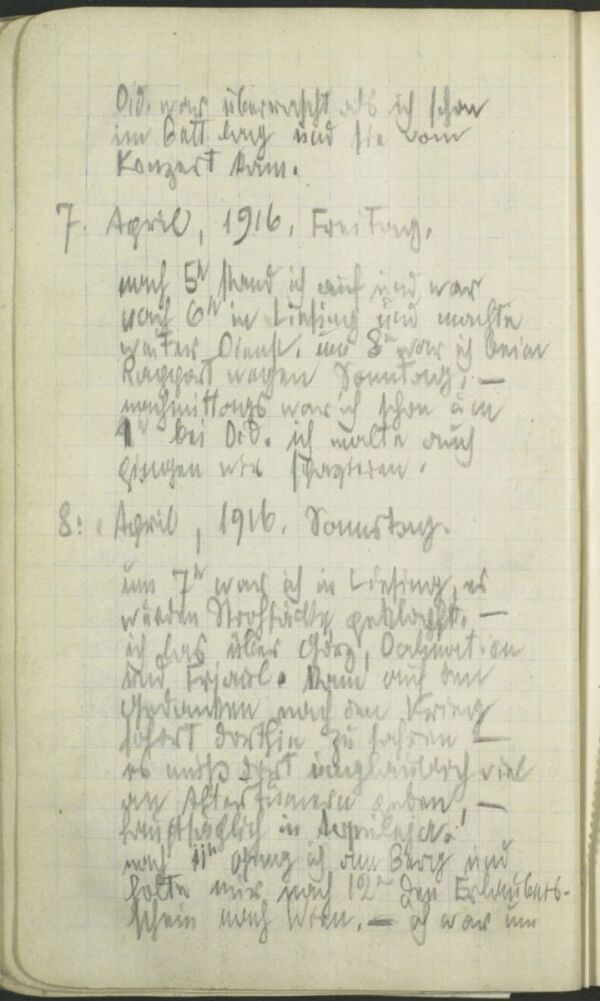 Did. war überrascht als ich schon
im Bett lag und sie vom
Konzert kam.
7. April, 1916. Freitag.
nach 5h stand ich auf und war
nach 6h in Liesing und machte
weiter Dienst. um 8h war ich beim
Rapport wegen Sonntag. —
nachmittags war ich schon um
bei Did. ich malte auch
gingen wir spazieren.
8. April, 1916. Samstag.
um 7h war ich in Liesing, es
wurden Strohsäcke geklopft. —
ich las über Görz, Dalmatien
und Friaul. kam auf den
Gedanken nach dem Krieg
sofort dorthin zu fahren —
es muß dort unglaublich viel
an Altertümern geben, —
hauptsächlich in Aquileja.!
nach 11h ging ich am Berg und
holte mir nach 12h den Erlaubnis-
schein nach Wien. — ich war um